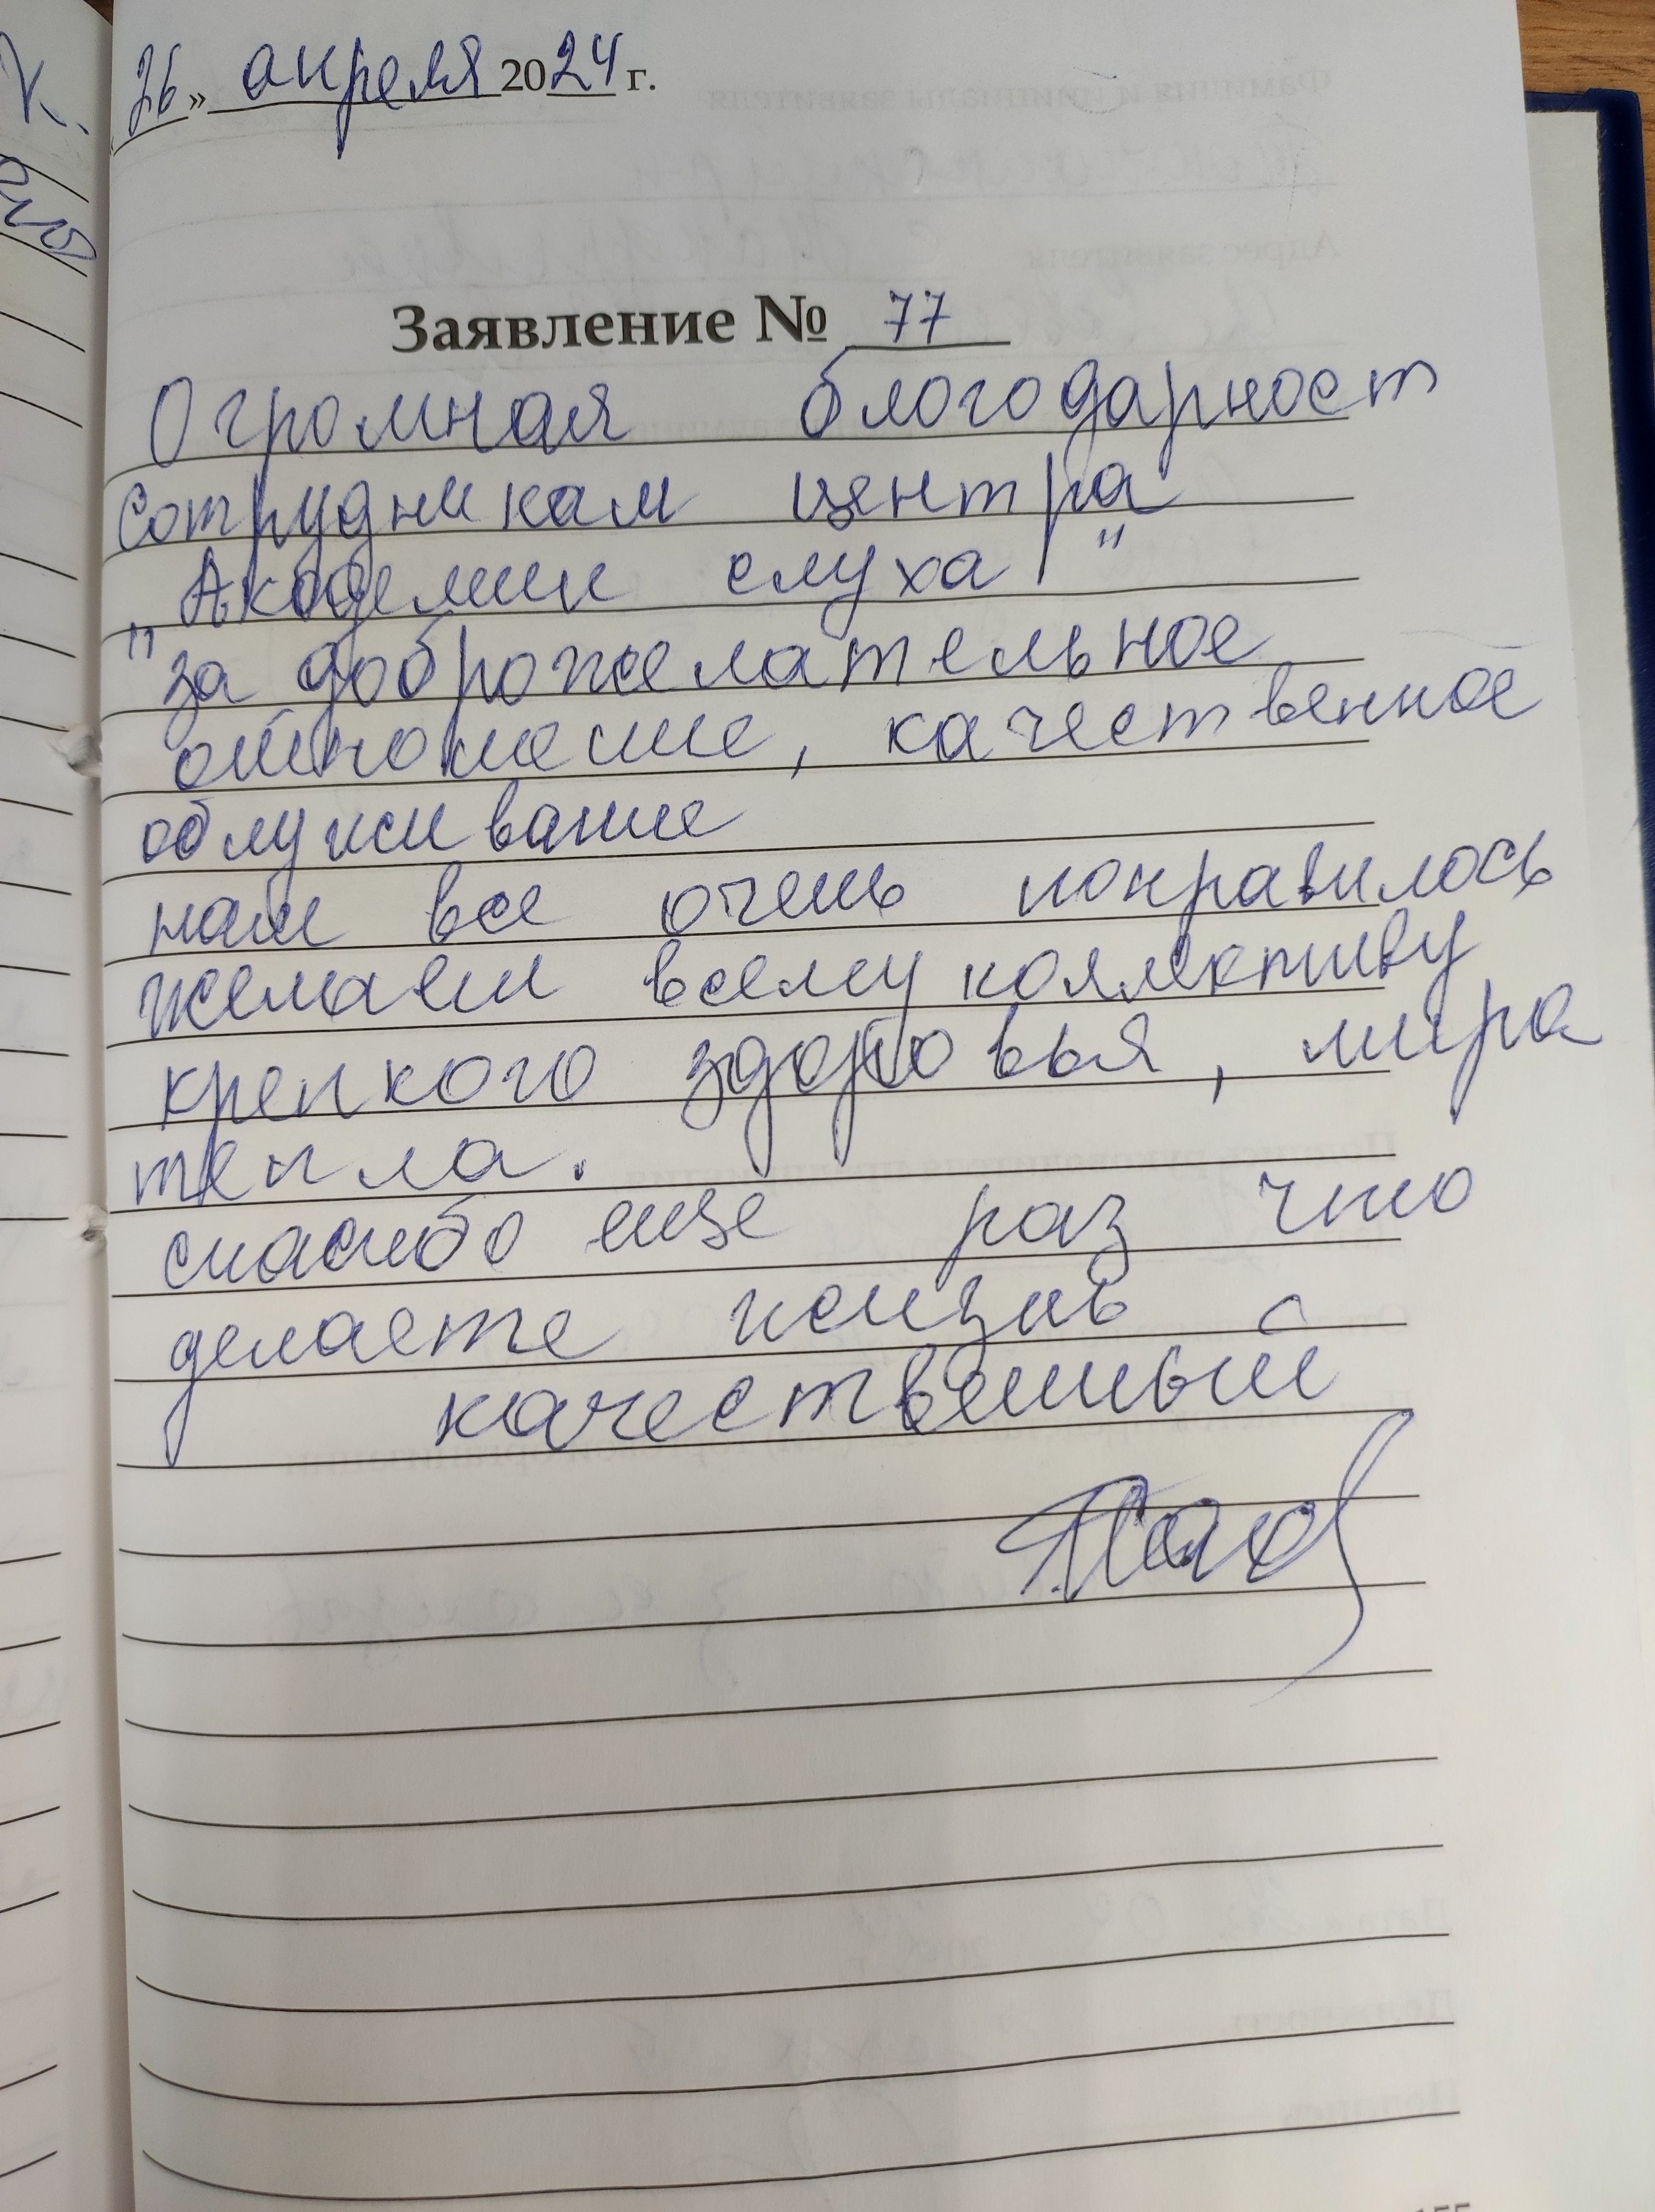 26» апреля 2024 г.
Заявление № 77
Огромная благодарност
сотрудникам центра
"Академии слуха"
за доброжелательное
отношение, качественное
облуживание
нам все очень понравилось
желаем всему коллективу
крепкого здоровья, мира
тепла.
спасибо еще раз что
делаете жизнь
качественный